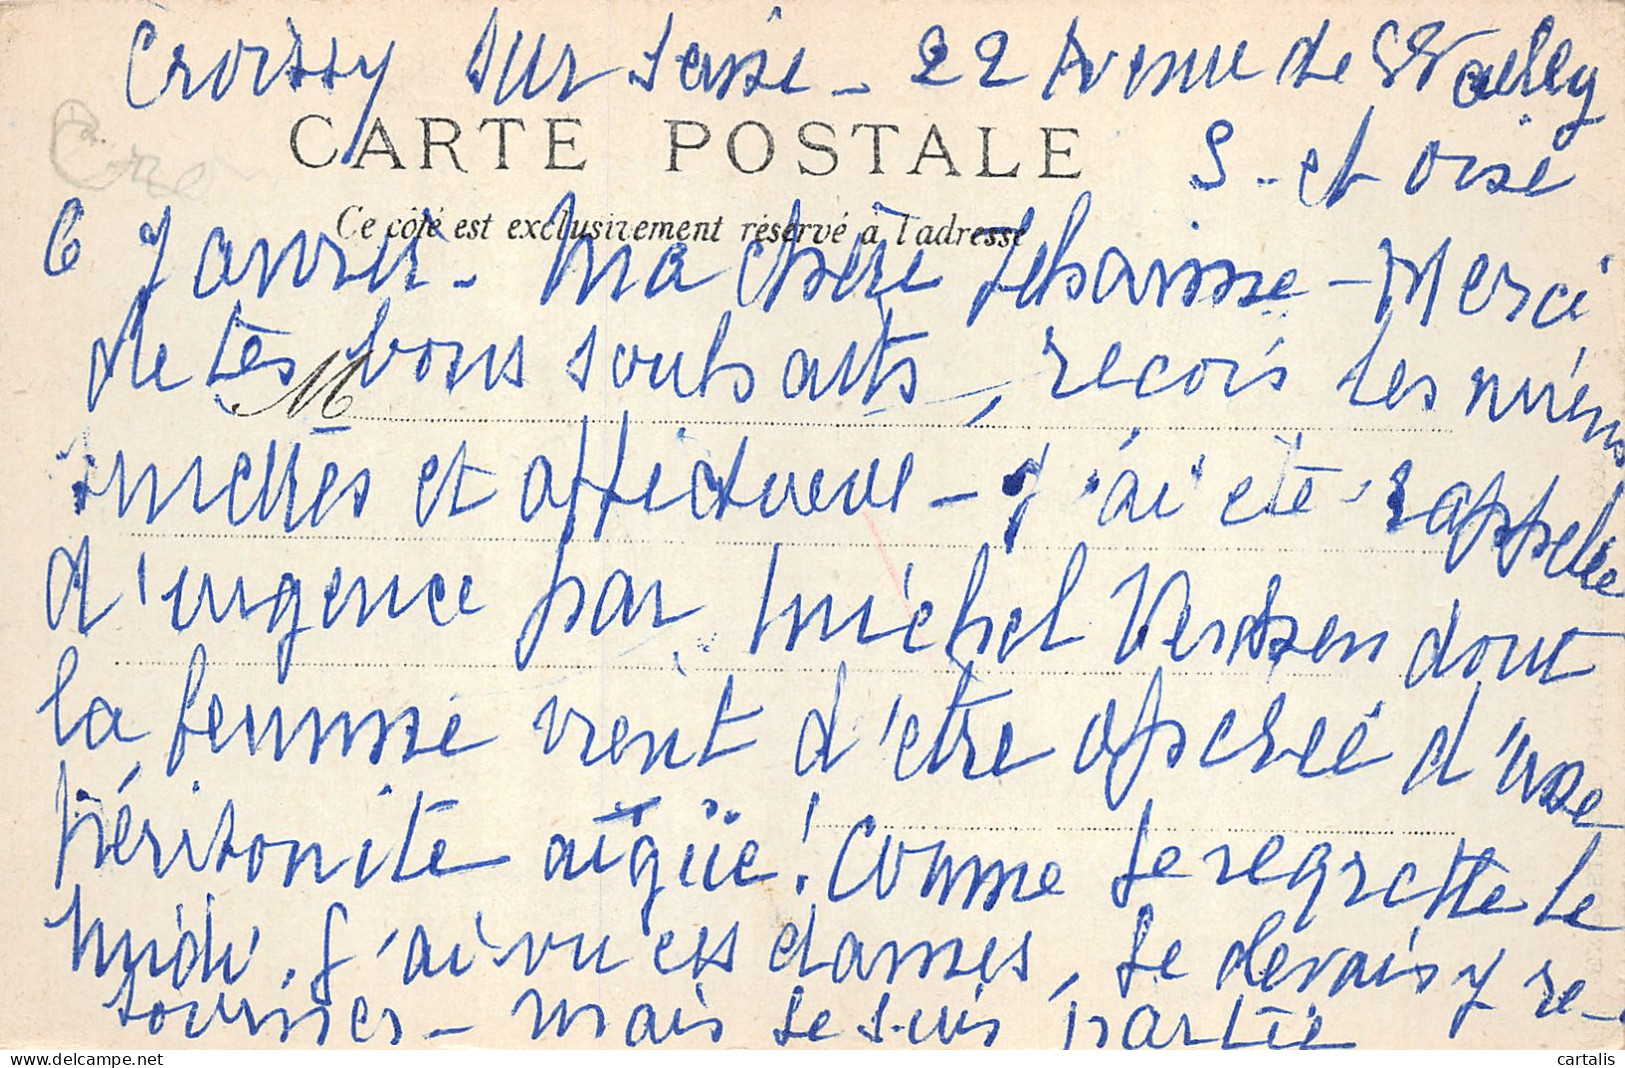 Croissy sur Seine - 22 Avenue de Wailly
CARTE POSTALE
S. et Oise
Ce côté est exclusivement réservé à l'adresse
6 Janvier - Ma chère - Merci
de tes bons souhaits, reçois les miens
M
et affectueux - J'ai été rappelée
d'urgence par Michel dont
la femme vient d'être opérée d'une
péritonite aigüe! Comme je regrette le
midi, j'ai vu ces dames, je devais y re-
tourner - mais je suis partie
cartalis